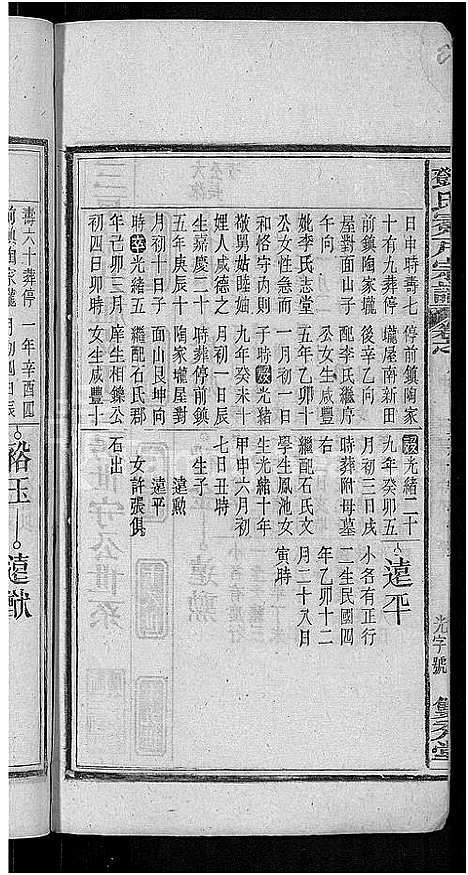 鄧氏宗譜
光字號
雙芬堂
日申時壽七
十有九葬停
前鎮陶家壠
屋對面山子
妣李氏志堂
公女性急而
恪守内則
敬男姑睦妯
娌人咸德之
生嘉慶二十
五年庚辰十
月初十日子
時卒光緒五
年己卯三月
初四日卯時
停前鎮陶家
壠屋南新田
後辛乙向
配李氏繼序
公女生咸豐
五年乙卯十
一月初一日
子時歿光緒
九年癸未十
月初一日辰
時葬停前鎮
陶家壠屋對
面山艮坤向
繼配石氏郡
庠生相鑠公
公女生咸豐十
歿光緒二十
九年癸卯五
月初三日戌
時葬附母墓
右
繼配石氏文
學生鳳池女
生光緒十年
甲申六月初
七日丑時
生子
遠勲
遠平
女許張俱
石出
遠平
小名有正行
二生民國四
年乙卯十二
月二十八日
寅時
壽六十葬停
前鎮陶家壠
一年辛酉四
月初四日辰
裕玉
遠猷